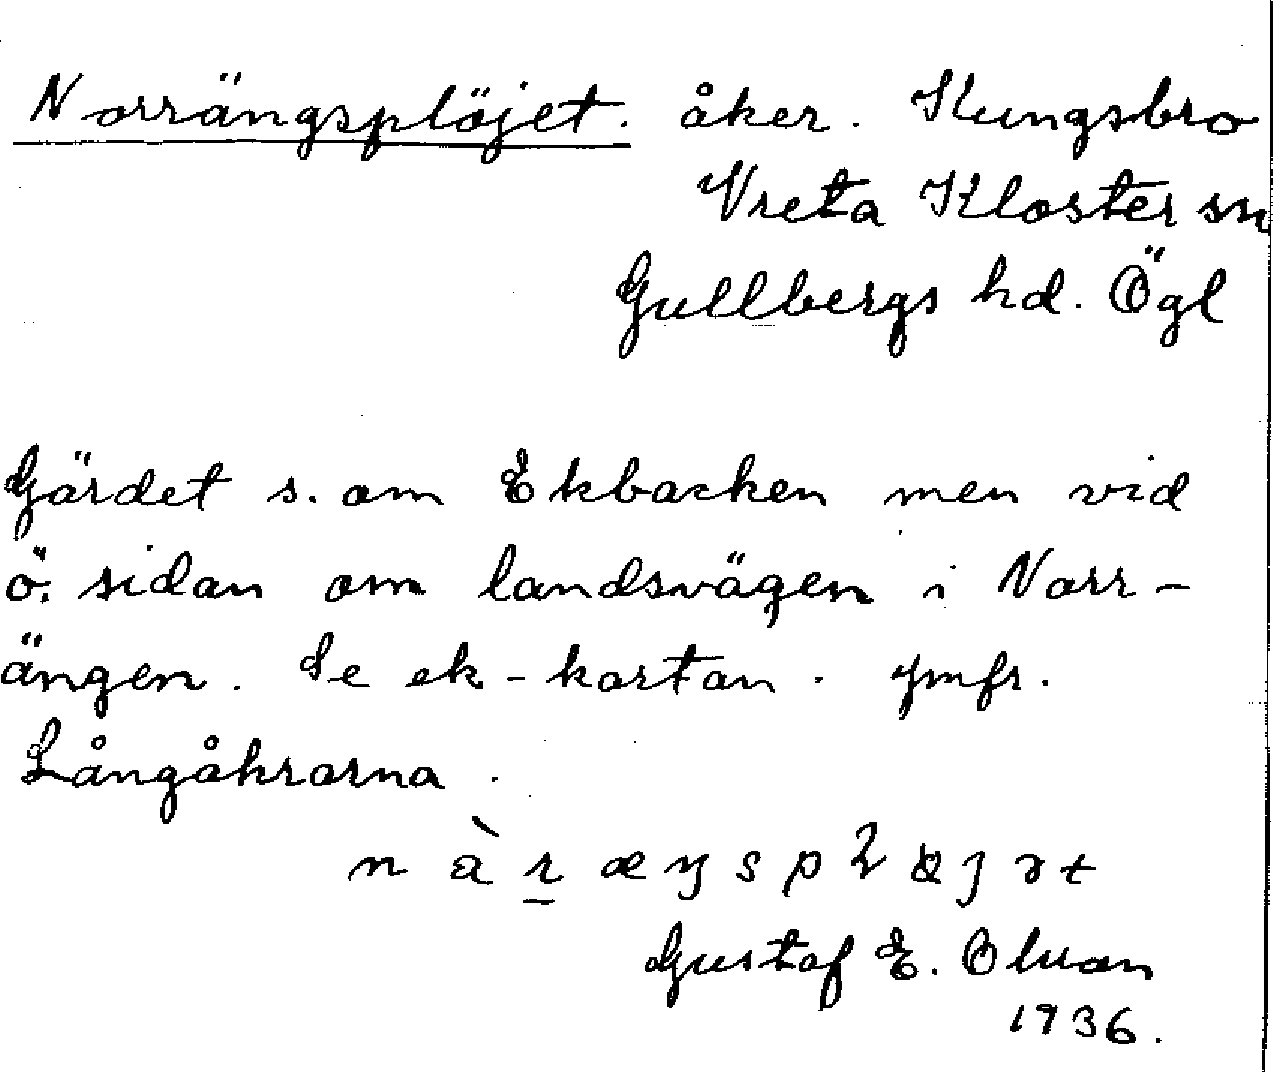 Norrängsplöjet. åker. Kungsbro
Vreta Kloster sn
Gullbergs hd. Ögl
Gärdet s. om Ekbacken men vid
ö. sidan om landsvägen i Norr-
ängen. Se ek-kartan. jmfr.
Långåkrarna.
Gustaf E. Olsson
1936.